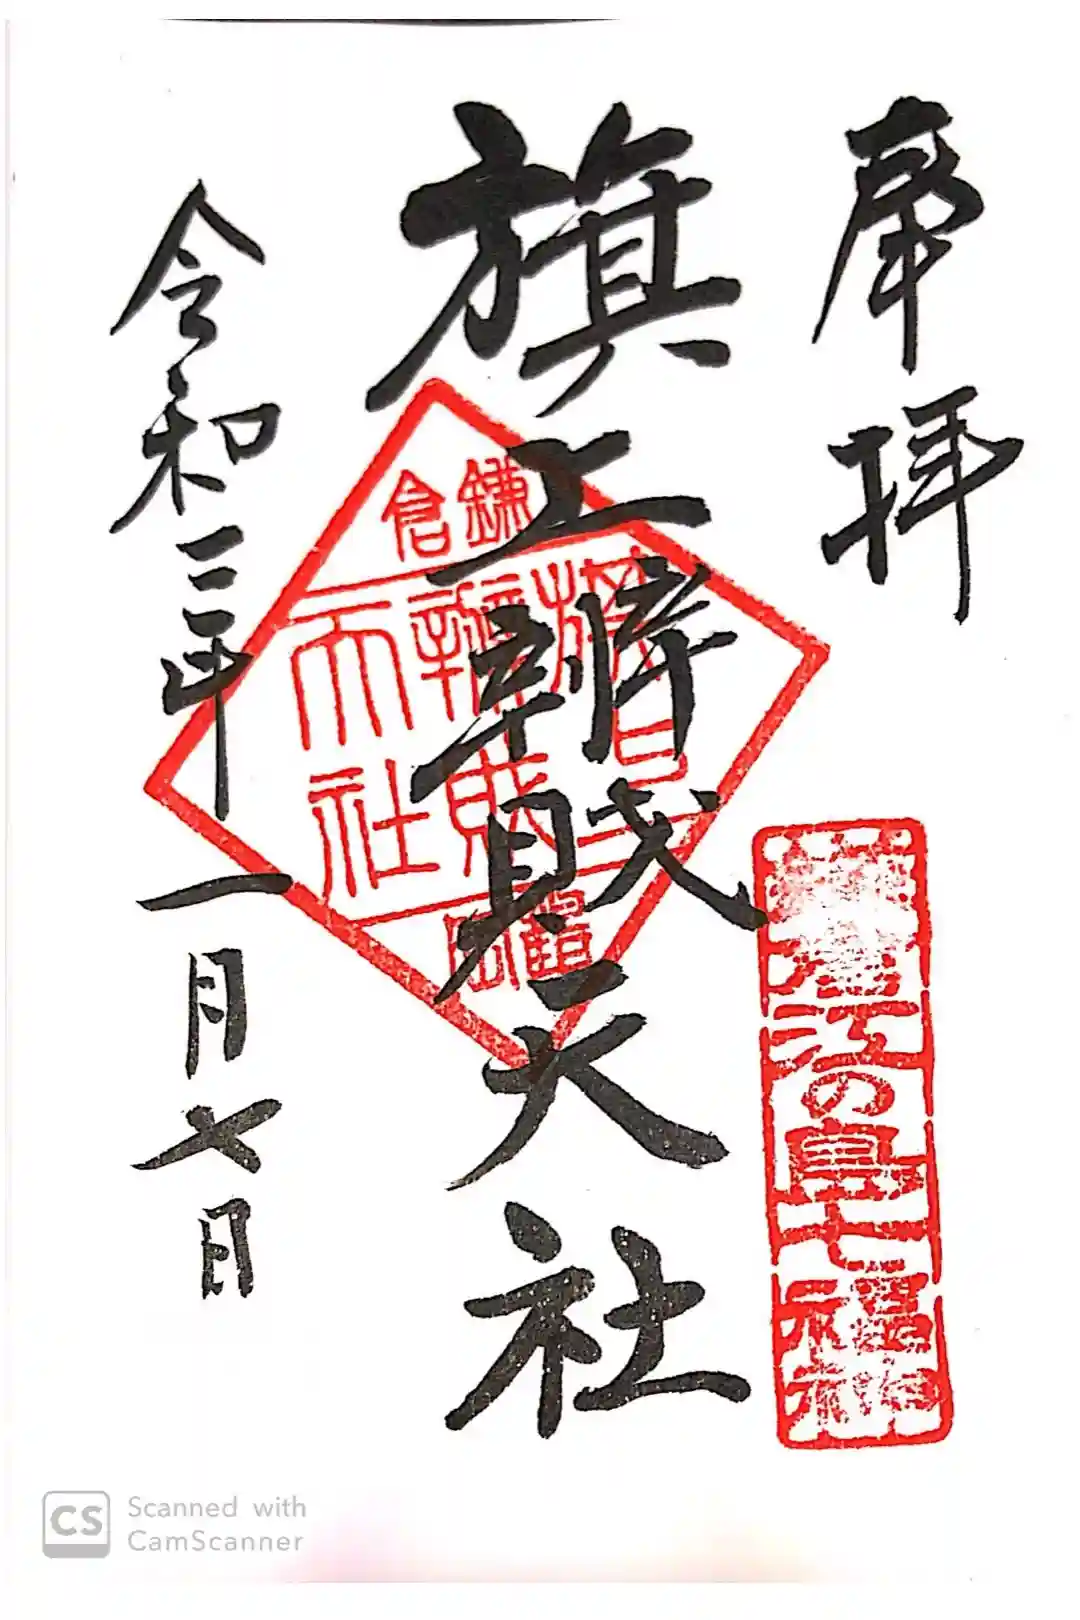 奉拝
鎌倉江の島七福神
旗上辨財天社
鎌倉
旗上
辨財
天社
鶴岡
令和三年
一月七日
CS Scanned with
CamScanner